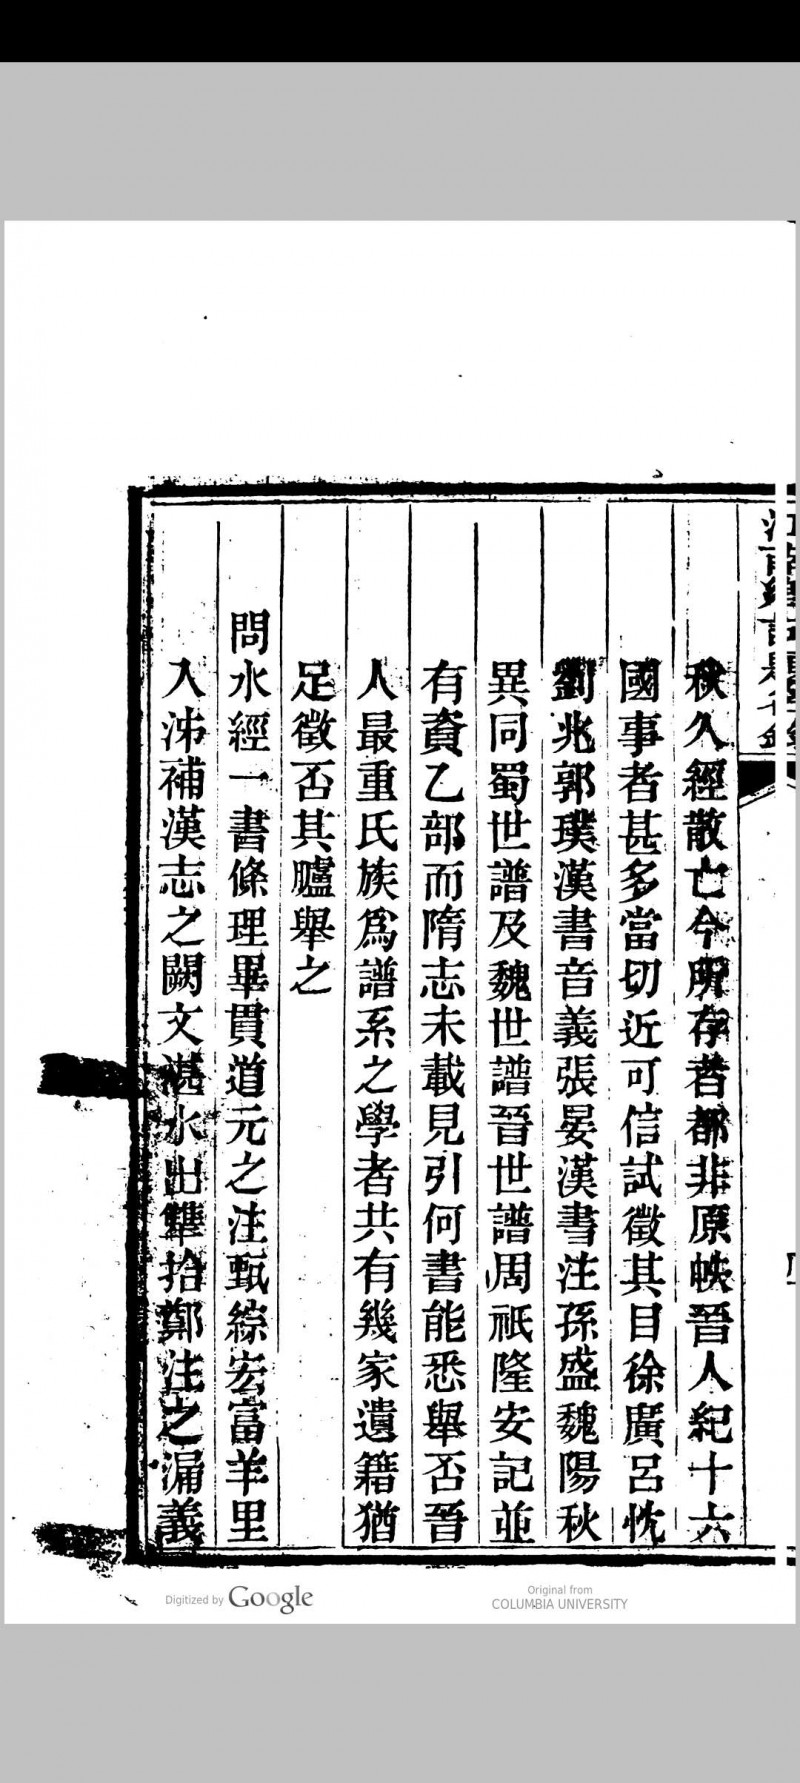 秋久經散亡今所存者都非原帙晉人紀十六
國事者甚多當切近可信試徵其目徐廣呂忱
劉兆郭璞漢書音義張晏漢書注孫盛魏陽秋
異同蜀世譜及魏世譜晉世譜周祇隆安記並
有資乙部而隋志未載見引何書能悉舉否晉
人最重氏族爲譜系之學者共有幾家遺籍猶
足徵否其臚舉之
問水經一書條理畢貫道元之注甄綜宏富羊里
入泲補漢志之闕文湛水出犨拾鄭注之漏義
Digitized by Google
Original from
COLUMBIA UNIVERSITY